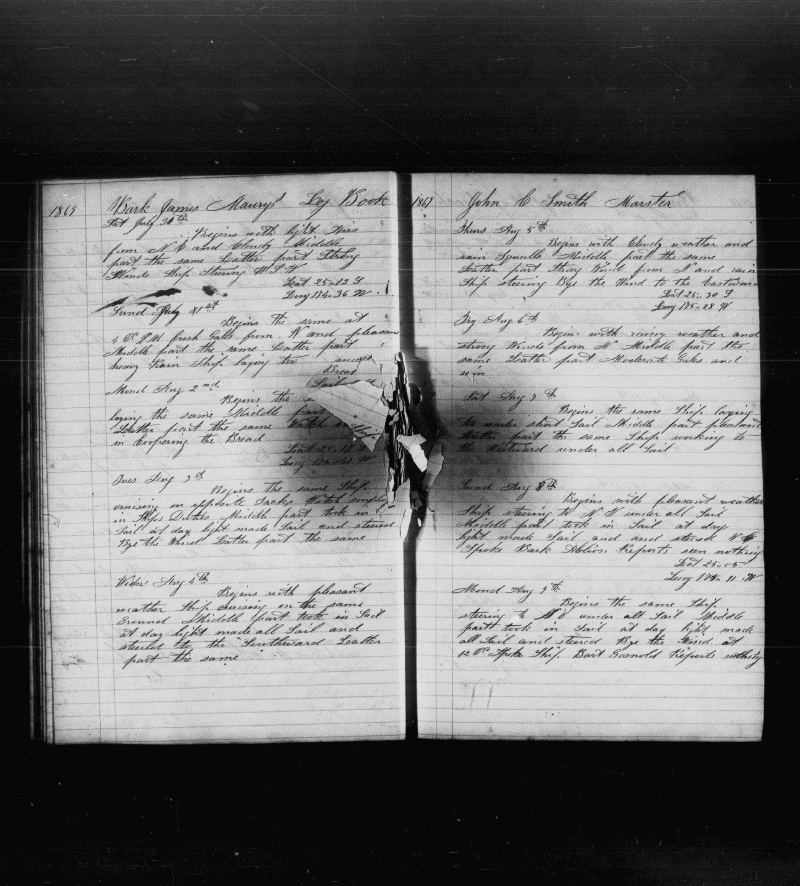 1869 Bark James Maury's Log Book
Sat July 30th
Begins with light Airs
from N E and Cloudy Middle
part the same Latter part Strong
Winds Ship Steering W S W
Lat 25-13 S
Long 174-36 W
Sund July 31st
Begins the same at
4 O.C P.M fresh Gales from N and pleasant
Middle part the same Latter part
heavy Rain Ship laying too
Bread
Mond Aug 2nd
Begins the
laying the same Middle part
Latter part the same Watch
in Coopering the Bread
Tues Aug 3th
Begins the same Ship
cruising on opposite Tacks Watch employ
in Ships Duties Middle part took in
Sail at day light made Sail and steered
Bye the Wind Latter part the same
Wedn Aug 4th
Begins with pleasant
weather Ship cruising on the same
Ground Middle part took in Sail
at day light made all Sail and
steered to the Southward Latter
part the same
1869 John C Smith Marster
Thurs Aug 5th
Begins with Cloudy weather and
rain Squalls Middle part the same
Latter part Strong Winds from N and rain
Ship steering Bye the Wind to the Eastward
Lat 25-30 S
Long 175-28 W
Fry Aug 6th
Begins with rainy weather and
strong Winds from N Middle part the
same Latter part Moderate Gales and
rain
Sat Aug 7th
Begins the same Ship laying
to under short Sail Middle part pleasant
Latter part the same Ship working to
the Eastward under all Sail
Sund Aug 8th
Begins with pleasant weather
Ship steering to N W under all Sail
Middle part took in Sail at day
light made Sail and and steered N W
Spoke Bark Reports seen nothing
Lat 25-05
Long 174-11 W
Mond Aug 9th
Begins the same Ship
steering to under all Sail Middle
part took in Sail at day light made
all Sail and steered Bye the Wind at
12 O.C Spoke Ship Bart Gosnold Reports nothing